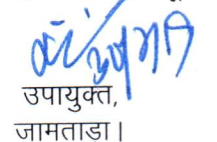 उपायुक्त,
जामताडा।